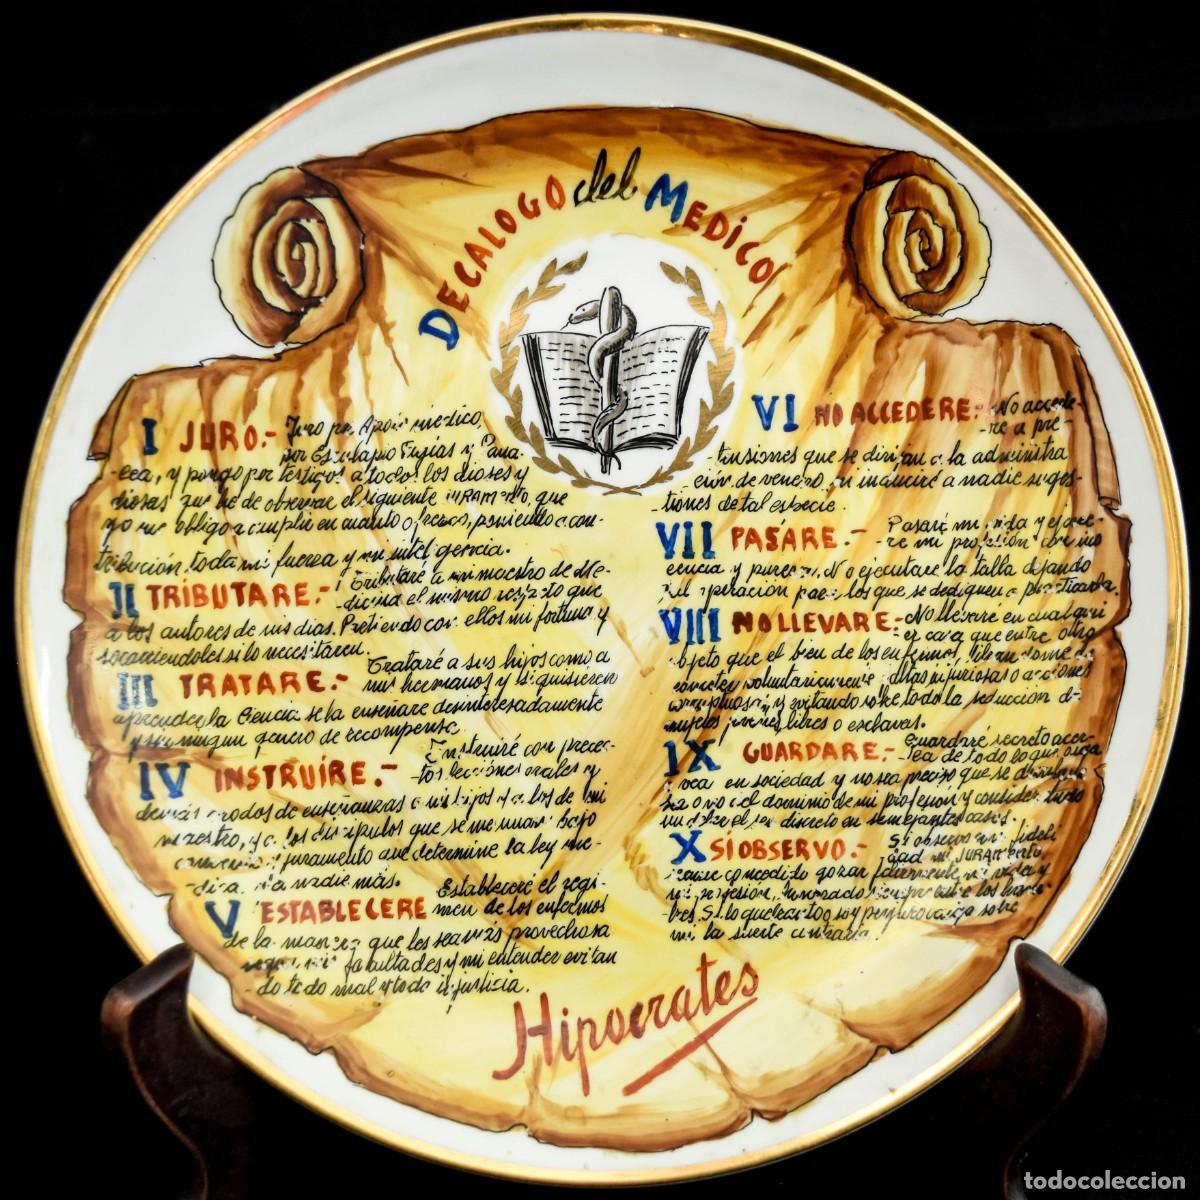 DECALOGO del MEDICO
I JURO.- Juro por Apolo médico,
por Esculapio Higías y Pana-
cea, y pongo por testigos a todos los dioses y
diosas que he de observar el siguiente JURAMENTO, que
yo me obligo a cumplir en cuanto ofrezco, poniendo a con-
tribución toda mi fuerza y mi inteligencia.
II TRIBUTARE.- Tributaré a mi maestro de Me-
dicina el mismo respeto que
a los autores de mis dias. Partiendo con ellos mi fortuna y
socorriendoles si lo necesitaren.
III TRATARE.- Trataré a sus hijos como a
mis hermanos y si quisieren
aprender la Ciencia se la enseñare desinteresadamente
y sin ningun genero de recompensa.
IV INSTRUÍRE.- Instruiré con precep-
tos lecciones orales y
demás modos de enseñanzas a mis hijos y a los de mi
maestro, y a los discipulos que se me unan bajo
convenio y juramento que determine la ley me-
dica, y a nadie más.
V ESTABLECERE Estableceré el regi-
men de los enfermos
de la manera que les sea más provechosa
segun mis facultades y mi entender evitan-
do todo mal y toda injusticia.
VI NO ACCEDERE.- No accede-
re a pre-
tensiones que se dirijan a la administra
ción de veneno, ni induciré a nadie suges-
tiones de tal especie.
VII PASARE.- Pasaré mi vida y ejerce-
re mi profesión con ino
cencia y pureza. No ejecutare la talla dejando
tal operación para los que se dediquen a practicarla.
VIII NO LLEVARE.- No llevaré en cualqui
er casa que entre otro
objeto que el bien de los enfermos, librandome de
cometer voluntariamente faltas injuriosas o acciones
corruptoras y evitando sobre todo la seducción de
mujeres jovenes, libres o esclavas.
IX GUARDARE.- Guardaré secreto acer-
ca de todo lo que oiga
o vea en sociedad y no sea preciso que se divulgue
sea o no el dominio de mi profesion y considerando
un deber el ser discreto en semejantes casos.
X SI OBSERVO.- Si observo con fideli
dad mi JURAMENTO,
seame concedido gozar felizmente mi vida y
mi profesión, honrado siempre entre los hom-
bres. Si lo quebranto y soy perjuro caiga sobre
mi la suerte contraria.
Hipocrates
todocoleccion